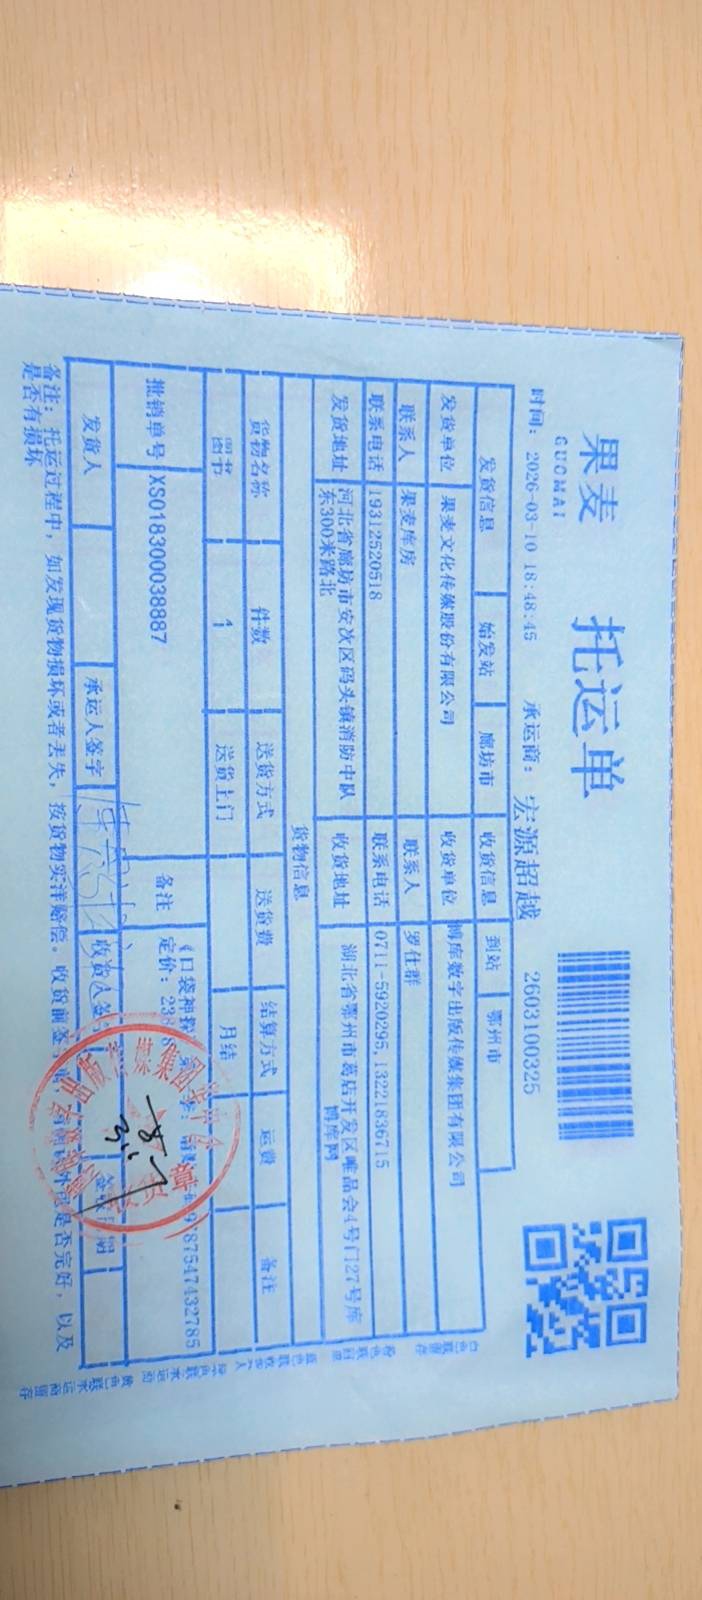 果麦
GUOMAI
托运单
时间: 2026-03-10 18:48:45 承运商: 宏源超越 2603100325
发货信息 始发站 廊坊市 收货信息 到站 鄂州市
发货单位 果麦文化传媒股份有限公司 收货单位 博库数字出版传媒集团有限公司
联系人 果麦库房 联系人 罗仕群
联系电话 19312520518 联系电话 0711-5920295,13221836715
发货地址 河北省廊坊市安次区码头镇消防中队东300米路北 收货地址 湖北省鄂州市葛店开发区唯品会4号门27号库博库网
货物信息
货物名称 件数 送货方式 送货费 结算方式 运费 备注
图书 1 送货上门 月结
批销单号 XS018300038887 备注 《口袋神探
定价: 238 787547432785
发货人 承运人签字 收货人签
备注: 托运过程中, 如发现货物损坏或者丢失, 按货物实洋赔偿。收货前 是否完好, 以及
是否有损坏